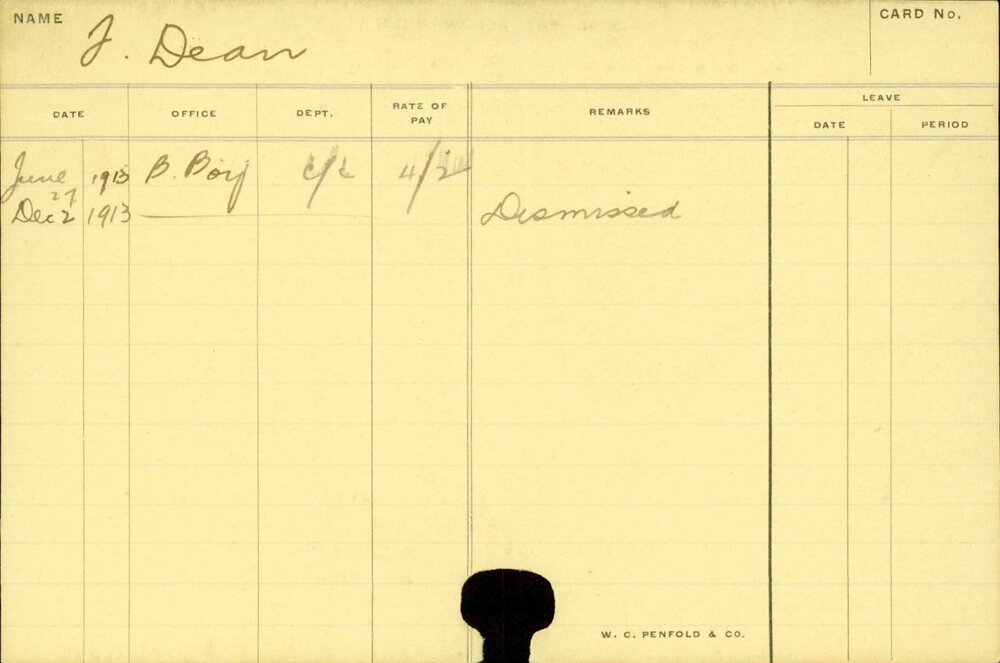 NAME J. Dean CARD No.
DATE OFFICE DEPT. RATE OF PAY REMARKS LEAVE
DATE PERIOD
June 27 1913 B. Boy C/L 4/2
Dec 2 1913 Dismissed
W. C. PENFOLD & CO.